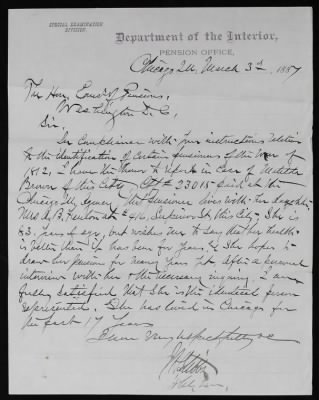 SPECIAL EXAMINATION
DIVISION.
Department of the Interior,
PENSION OFFICE,
Chicago Ill, March 3d, 1887
The Hon. Com'r of Pensions,
Washington D. C.
Sir.
In Compliance with your instructions relative
to the identification of certain pensioners of the War of
1812, I have the honor to report in Case of
Brown of this City Ctf # 23015 paid at the
Chicago Ill, Agency. The Pensioner lives with her daughter
Mrs A. B. at # 416, Superior St this City. She is
83. years of age, but wishes me to say that her health
is better than it has been for years, & she hopes to
draw her pension for many years yet. After a personal
interview with her & the necessary inquiry, I am
fully satisfied that she is the identical person
represented. She has lived in Chicago for
the past 17 years
Very respectfully